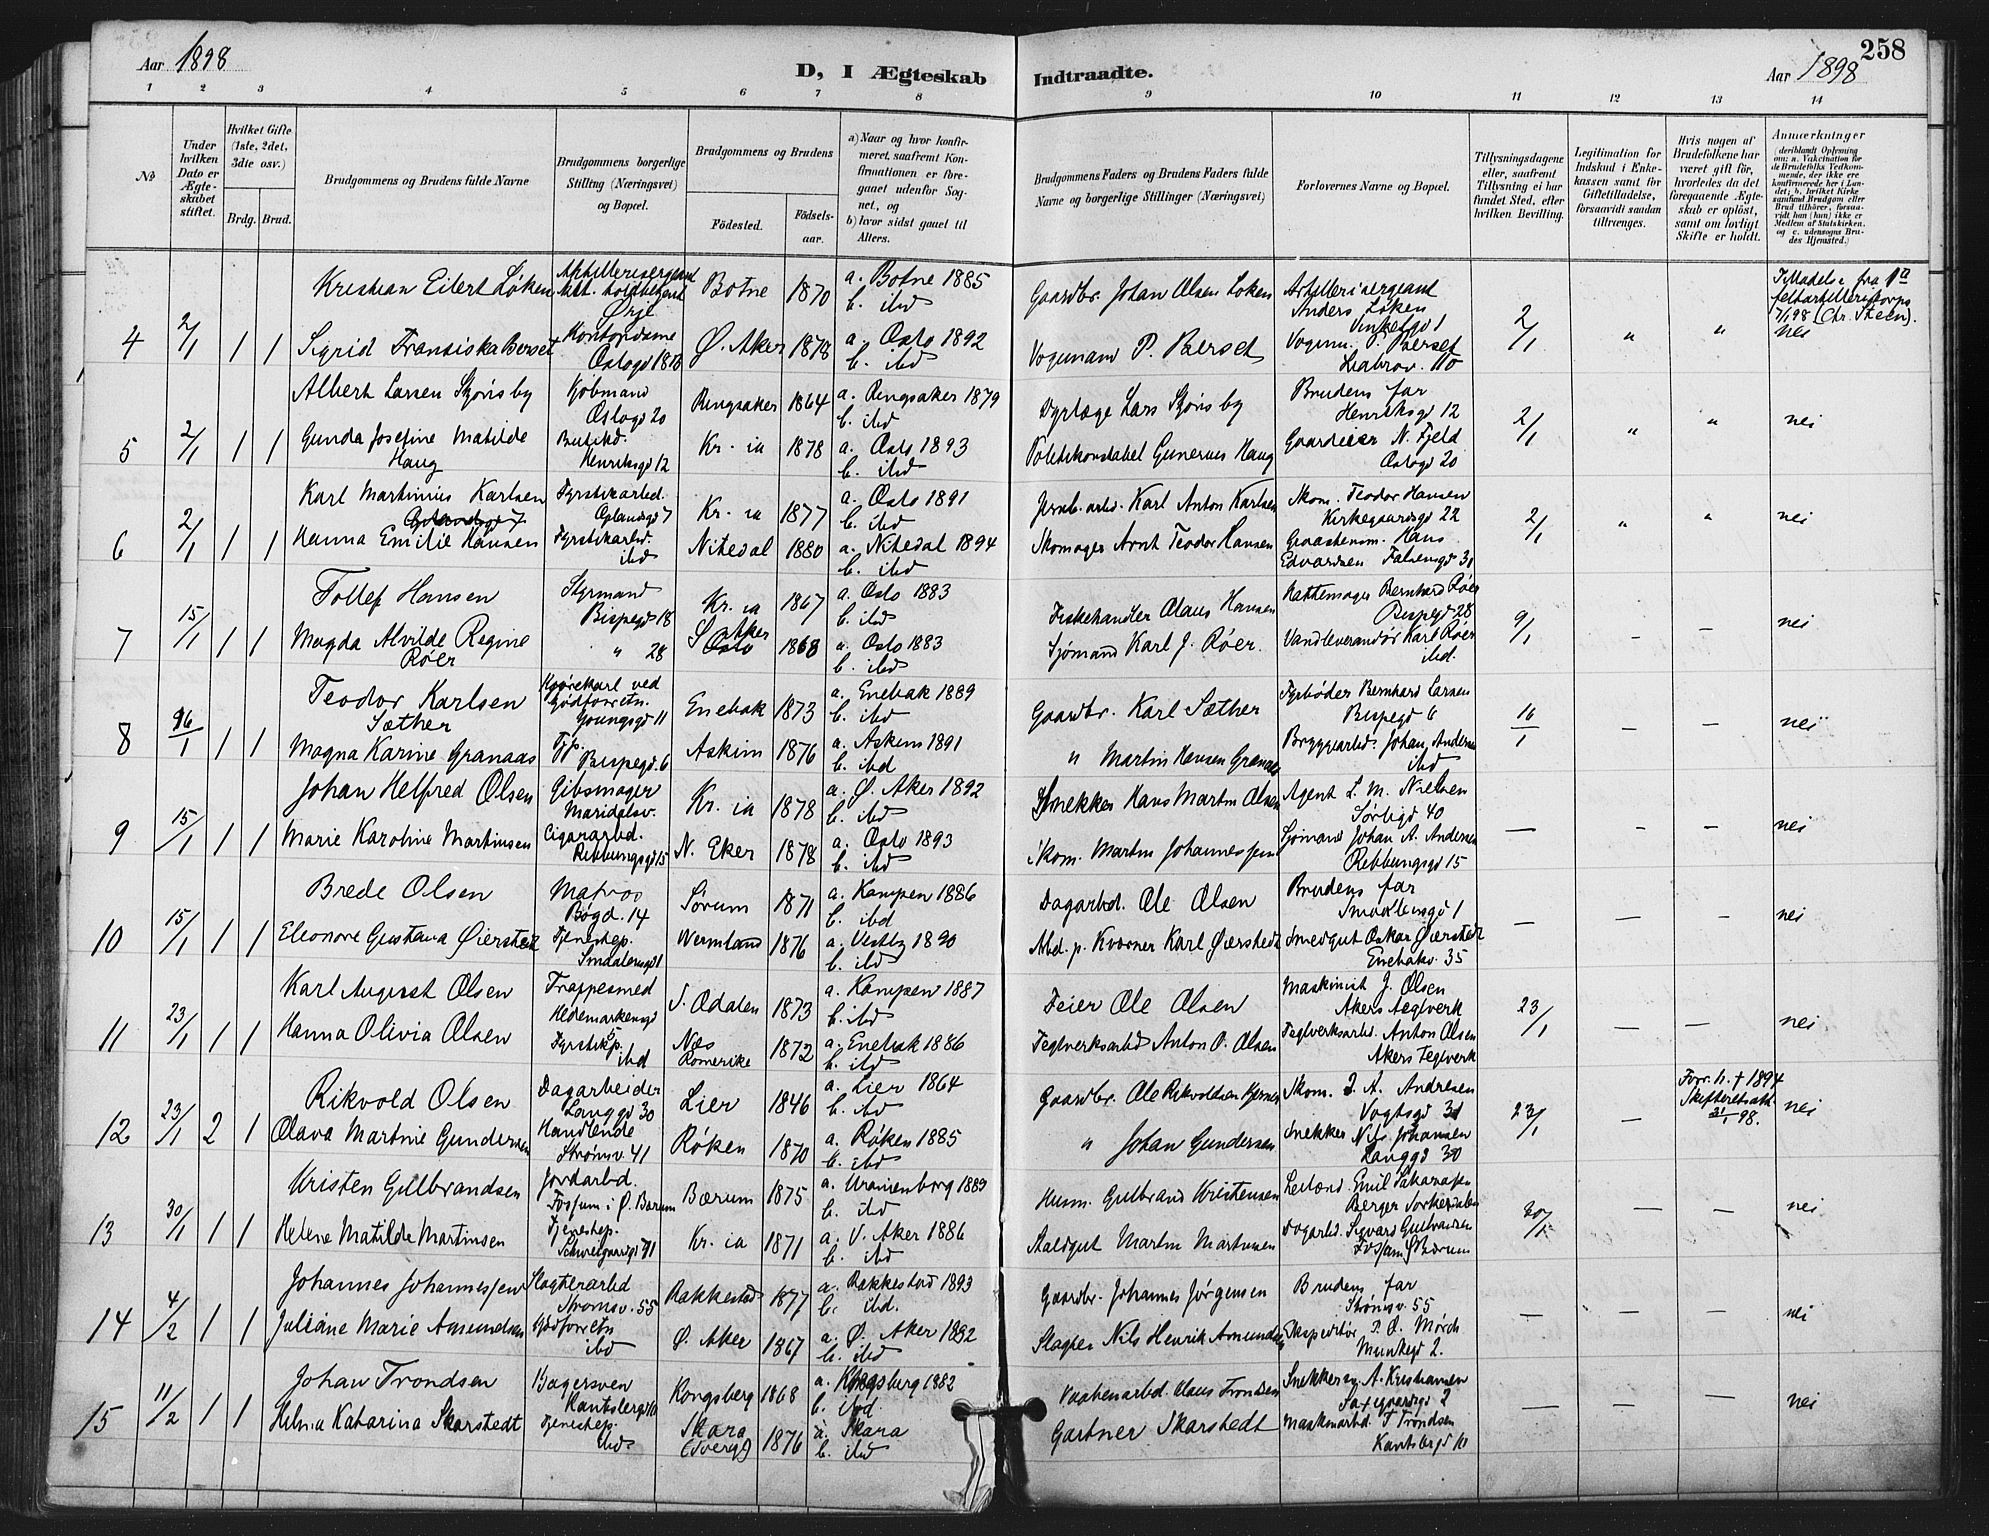 258
Aar 1898
D, I Ægteskab Indtraadte.
Aar 1898
1 2 3 4 5 6 7 8 9 10 11 12 13 14
No
Under hvilken Dato er Ægteskabet stiftet.
Hvilket Gifte (1ste, 2det, 3die osv.)
Brdg. Brud.
Brudgommens og Brudens fulde Navne
Brudgommens borgerlige Stilling (Næringsvei) og Bopæl.
Brudgommens og Brudens
Fødested.
Fødselsaar.
a) Naar og hvor konfirmeret, saafremt Konfirmationen er foregaaet udenfor Sognet, og
b) hvor sidst gaaet til Alters.
Brudgommens Faders og Brudens Faders fulde Navne og borgerlige Stillinger (Næringsvei)
Forlovernes Navne og Bopæl.
Tillysningsdagene eller, saafremt Tillysning ei har fundet Sted, efter hvilken Bevilling.
Legitimation for Indskud i Enkekassen samt for Giftetilladelse, forsaavidt saadan tiltrænges.
Hvis nogen af Brudefolkene har været gift før, hvorledes da det foregaaende Ægteskab er opløst, samt om lovligt Skifte er holdt.
Anmærkninger
4 2/1 1 1
Kristian Eilert Løken
Botne 1870
a. Botne 1885
b. ibd
Gaardbr. Johan Olsen Løken
Artillerisergeant Anders Løken
2/1 " "
Sigrid Fransiska Berset
Kontordame
Ø. Aker 1878
a. Oslo 1892
b. ibd
Vognmand P. Berset
nei
5 2/1 1 1
Albert Larsen Skjørisby
Kjøbmand
Oslogd 20
Ringsaker 1864
a. Ringsaker 1879
b. ibd
Dyrlæge Lars Skjørisby
Brudens far
Henriksgd 12
2/1 " " nei
Gunda Josefine Matilde Haug
Henriksgd 12
Kr.ia 1878
a. Oslo 1893
b. ibd
Politikonstabel Gunerius Haug
Gaardeier N. Fjeld
Oslogd 20
6 2/1 1 1
Karl Martinius Karlsen
Fyrstikarbd.
Kr.ia 1877
a. Oslo 1891
b. ibd
Jernb.arbd. Karl Anton Karlsen
Skom. Teodor Hansen
Kirkegaardsgd 22
2/1 " " nei
Hanna Emilie Hansen
Fyrstikarbd.
ibd
Nitedal 1880
a. Nitedal 1894
b. ibd
Skomager Arnt Teodor Hansen
Hans Edvardsen Falsensgd 31
7 15/1 1 1
Tollef Hansen
Styrmand
Bispegd 18
Kr.ia 1867
a. Oslo 1883
b. ibd
Fiskehandler Olaus Hansen
Hattemager Bernhard Røer
Bispegd 28
9/1 - - nei
Magda Alvilde Regine Røer
" 28
1868
a. Oslo 1883
b. ibd
Sjømand Karl J. Røer.
Vandleverandør Karl Røer
ibd.
8 16/1 1 1
Teodor Karlsen Sæther
Kjørekarl ved
Youngsgd 11
Enebak 1873
a. Enebak 1889
b. ibd
Gaardbr. Karl Sæther
Fyrbøder Bernhard Larsen
Bispegd 6
16/1 — — nei
Magna Karine Granaas
Tjp. Bispegd. 6
Askim 1876
a. Askim 1891
b. ibd
" Martin Hansen Granaas
Bryggearbd. Johan Andersen
ibd
9 15/1 1 1
Johan Helfred Olsen
Gibsmager
Maridalsv.
Kr.ia 1878
a. Ø. Aker 1892
b. ibd
Snekker Hans Martin Olsen
Agent L. M. Nielsen
Sørligd 40
— - - nei
Marie Karoline Martinsen
Cigararbd.
Ribbungsgd 15
N. Eker 1878
a. Oslo 1893
b. ibd
Skom. Martin Johannessen
Sjømand Johan A. Andersen
Ribbungsgd 15
10 15/1 1 1
Brede Olsen
Matros
Bøgd. 14
Sørum 1871
a. Kampen 1886
b. ibd
Dagarbd. Ole Olsen
Brudens far
Smaalensgd 1
— — - nei
Eleonore Gustava Øiersted
Tjenestep.
Smaalensgd 1
Wermland 1876
a. Vestby 1890
b. ibd
Arbd. p. Kværner Karl Øiersted
Smedgut Oskar Øiersted
Enebakv. 35
11 23/1 1 1
Karl August Olsen
Trappesmed
Hedemarkensgd 5
S. Odalen 1873
a. Kampen 1887
b. ibd
Feier Ole Olsen
Maskinist J. Olsen
Akers Teglverk
23/1 — — nei
Hanna Olivia Olsen
Fyrstikp.
ibd
Næs Romerike 1872
a. Enebak 1886
b. ibd
Teglverksarbd Anton P. Olsen
Teglverksarbd. Anton Olsen
Akers Teglverk
12 23/1 2 1
Rikvold Olsen
Dagarbeider
Langgd 30
Lier 1846
a. Lier 1864
b. ibd
Gaardbr. Ole Rikvoldsen
Skom. J. A. Andresen
Vogtsgd 31
23/1 —
Forr. h. † 1894
Skifteretsatt. 21/1 98.
nei
Olava Martine Gundersen
Handlende
Strømsv. 41
Røken 1870
a. Røken 1885
b. ibd
" Johan Gundersen
Snekker Nils Johansen
Langgd 30
13 30/1 1 1
Kristen Gulbrandsen
Jordarbd.
Fossum i Ø. Bærum
Bærum 1875
a. Uranienborg 1889
b. ibd
Husm. Gulbrand Kristensen
Berger Sørkedalen
30/1 — — nei
Helene Matilde Martinsen
Tjenestep.
Schweigaardsgd 71
Kr.ia 1871
a. V. Aker 1886
b. ibd
Staldgut Martin Martinsen
Dagarbd. Sigvard Gulbrandsen
Fossum Ø Bærum
14 4/2 1 1
Johannes Johannessen
Slagteriarbd
Strømsv. 55
Rakkestad 1877
a. Rakkestad 1893
b. ibd.
Gaardbr. Johannes Jørgensen
Brudens far
Strømsv. 55
— — — nei
Juliane Marie Amundsen
ibd
Ø. Aker 1867
a. Ø. Aker 1882
b. ibd
Slagter Nils Henrik Amundsen
Ekspeditør P. O. Mørch
Munkegd 2.
15 11/2 1 1
Johan Trondsen
Bagersven
Kongsberg 1868
a. Kongsberg 1882
b. ibd
Vaabenarbd. Olaus Trondsen
Snekkersv. A. Kristiansen
Saxegaardsgd 2
— — — nei
Helma Katarina Skarstedt
Tjenestep.
ibd
Skara (Sverge) 1876
a. Skara
b. ibd
Gartner Skarstedt
Maskinarbd. T Trondsen